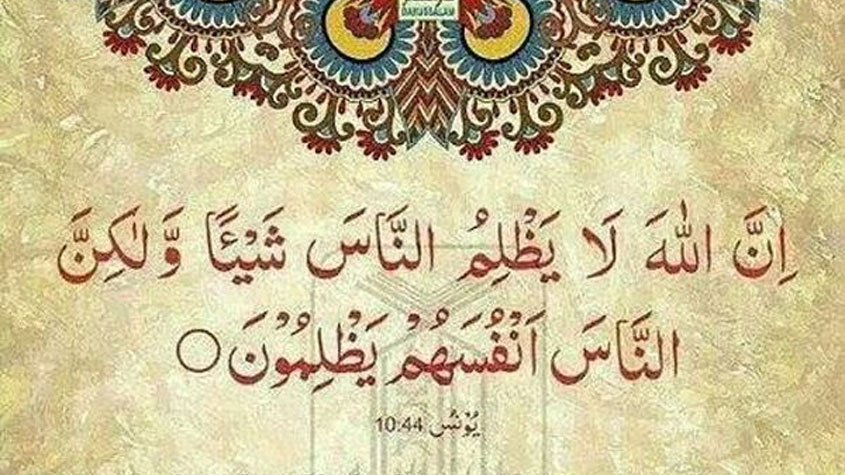 DARUSSALAM
اِنَّ اللّٰهَ لَا يَظْلِمُ النَّاسَ شَيْـًٔا وَّلٰكِنَّ
النَّاسَ اَنْفُسَهُمْ يَظْلِمُوْنَ○
يُوْنُس 10:44